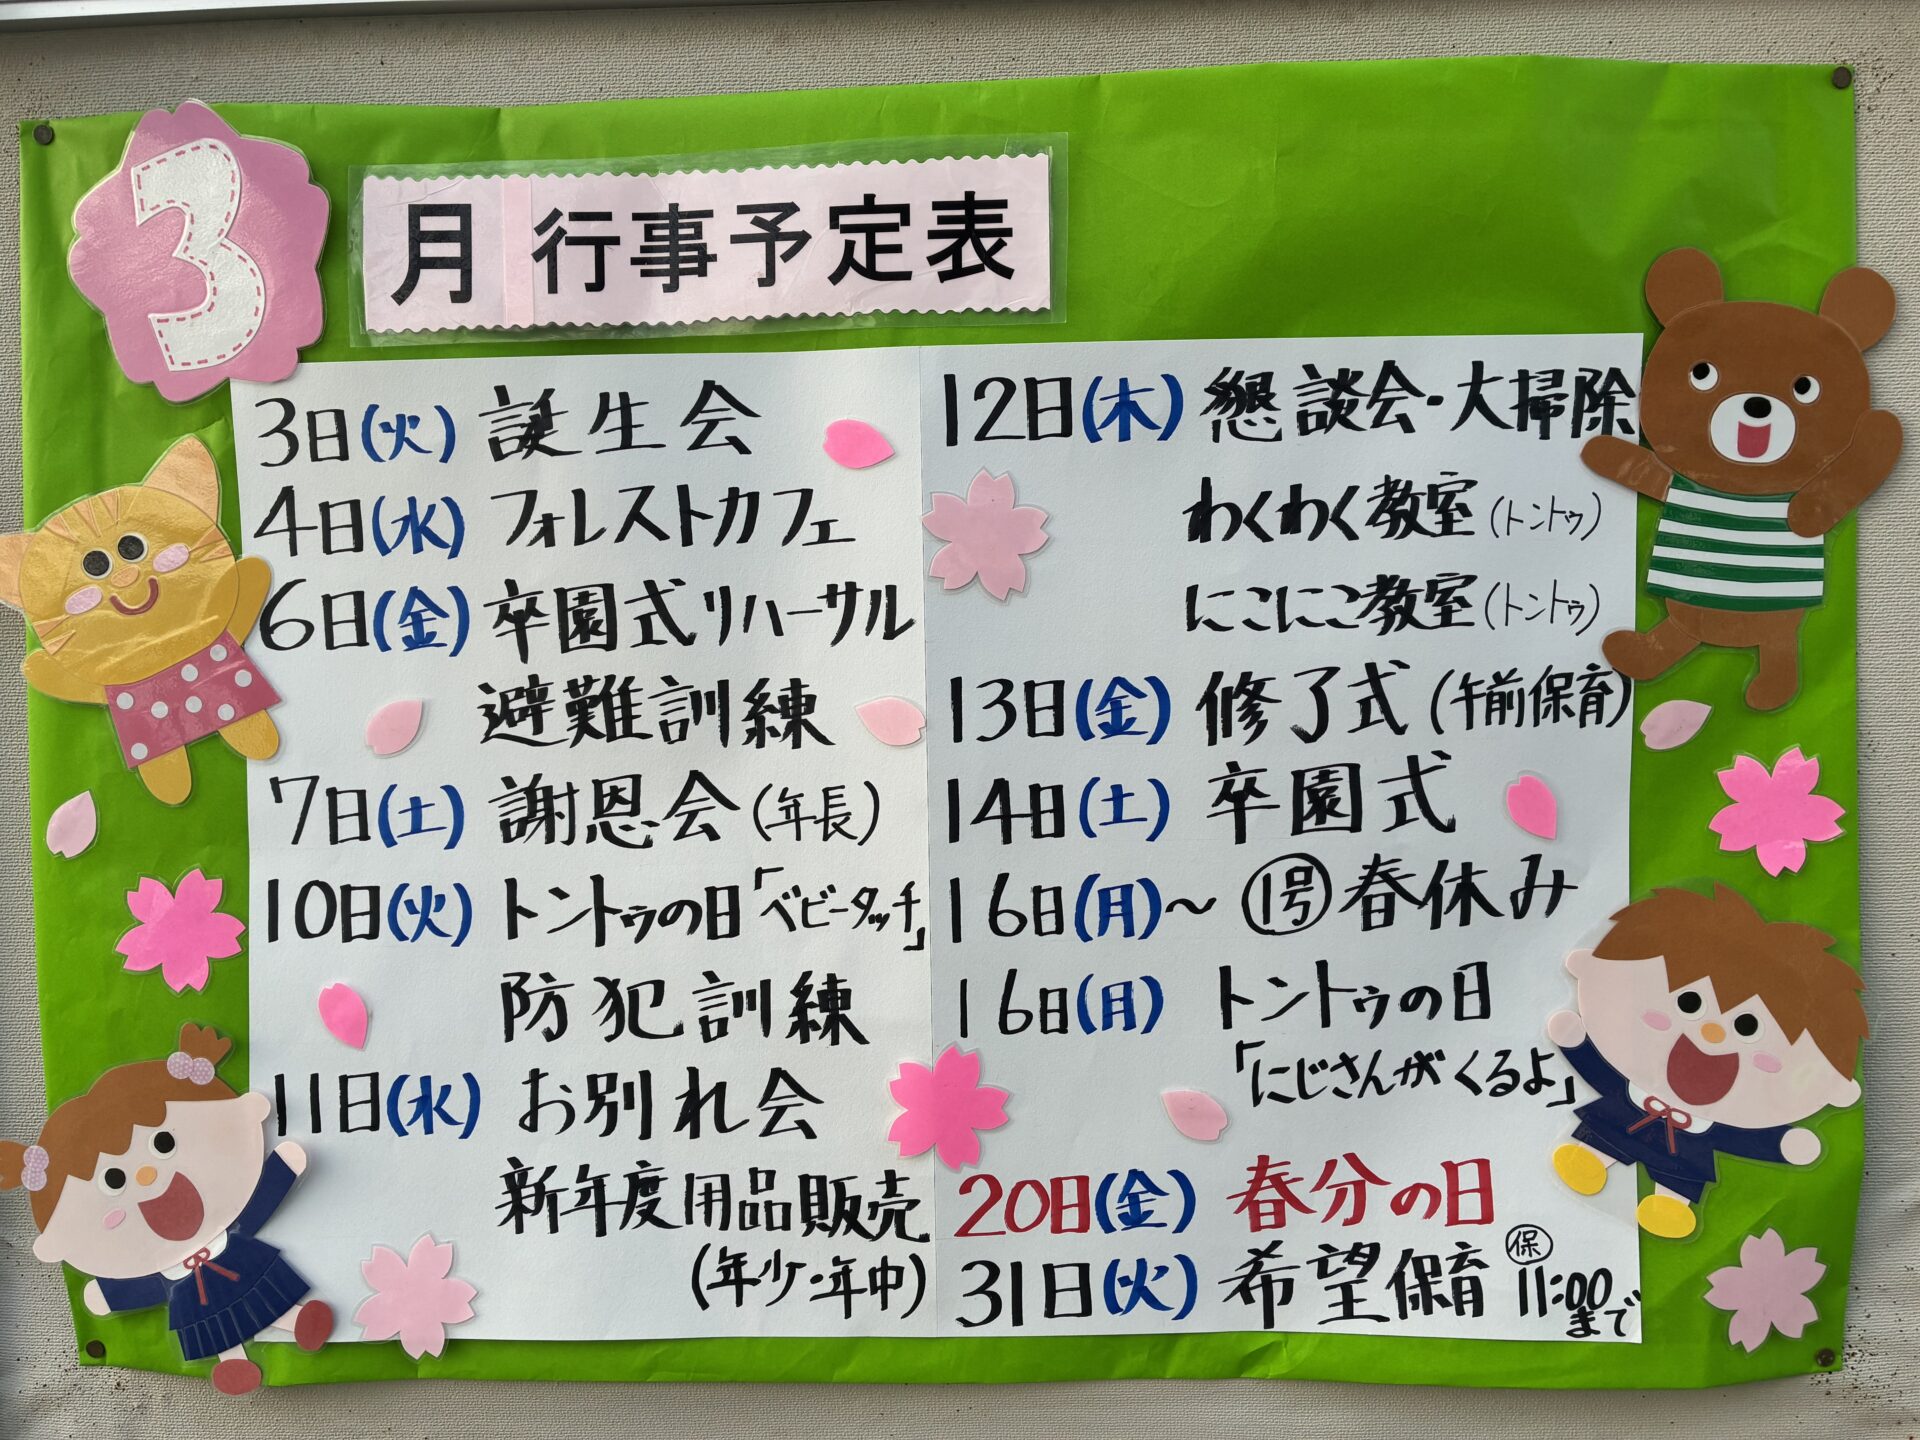 3月 行事予定表
3日(火) 誕生会
4日(水) フォレストカフェ
6日(金) 卒園式リハーサル
避難訓練
7日(土) 謝恩会(年長)
10日(火) トントゥの日「ベビータッチ」
防犯訓練
11日(水) お別れ会
新年度用品販売
(年少・年中)
12日(木) 懇談会・大掃除
わくわく教室(トントゥ)
にこにこ教室(トントゥ)
13日(金) 修了式(午前保育)
14日(土) 卒園式
16日(月)～ 1号 春休み
16日(月) トントゥの日
「にじさんがくるよ」
20日(金) 春分の日
31日(火) 希望保育 保 11:00まで